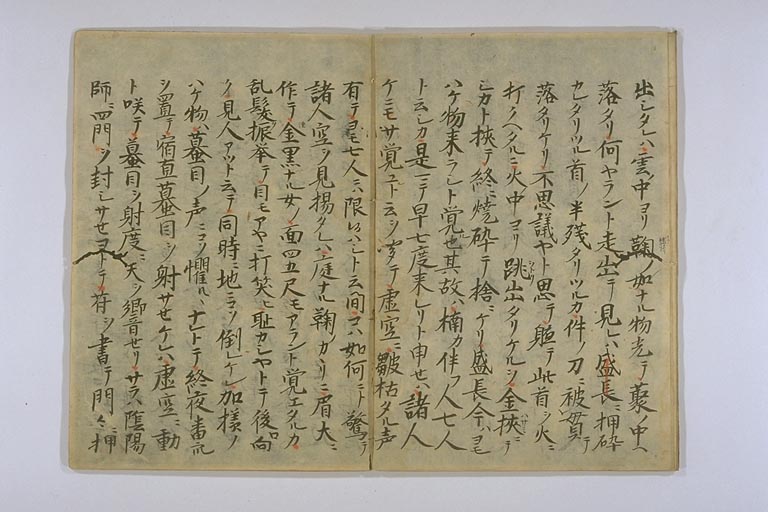 出シタレハ雲ノ中ヨリ鞠ノ如ナル物光テ藂ノ中ヘ
落タリ何ヤラント走出テ見レハ盛長ニ押砕
カレタリツル首ノ半残タリツルカ件ノ刀ニ被貫テ
落タリケリ不思議ヤト思テ軈テ此首ヲ火ニ
打クヘタルニ火中ヨリ跳出タリケルヲ金挾ニテ
シカト挾テ終ニ焼砕テ捨ニケリ盛長今ハヨモ
ハケ物来ラシト覚也其故ハ楠カ伴フ人七人
ト云シカ是ニテ早七度来レリト申セハ諸人
ケニモサ覚ユト云ヲ聞テ虚空ニ皺枯タル声
有テヨモ七人ニハ限ハシト云間コハ如何ニト驚テ
諸人空ヲ見揚タレハ庭ナル鞠ノカヽリニ眉大ニ
作テ金黒ナル女ノ面四五尺モアラント覚エタルカ
乱髪振挙テ目モアヤニ打笑ヒ耻カシヤトテ後向
ク見人アツト云テ同時ニ地ニソ倒レケル加様ノ
ハケ物ハ蟇目ノ声ニコソ懼ルナレトテ終夜番衆
ヲ置テ宿直蟇目ヲ射サセケレハ虚空ニ動
ト咲テ蟇目ヲ射度ニ天ヲ響音セリサラハ陰陽
師ニ四門ヲ封シサセヨトテ符ヲ書テ門々ニ押